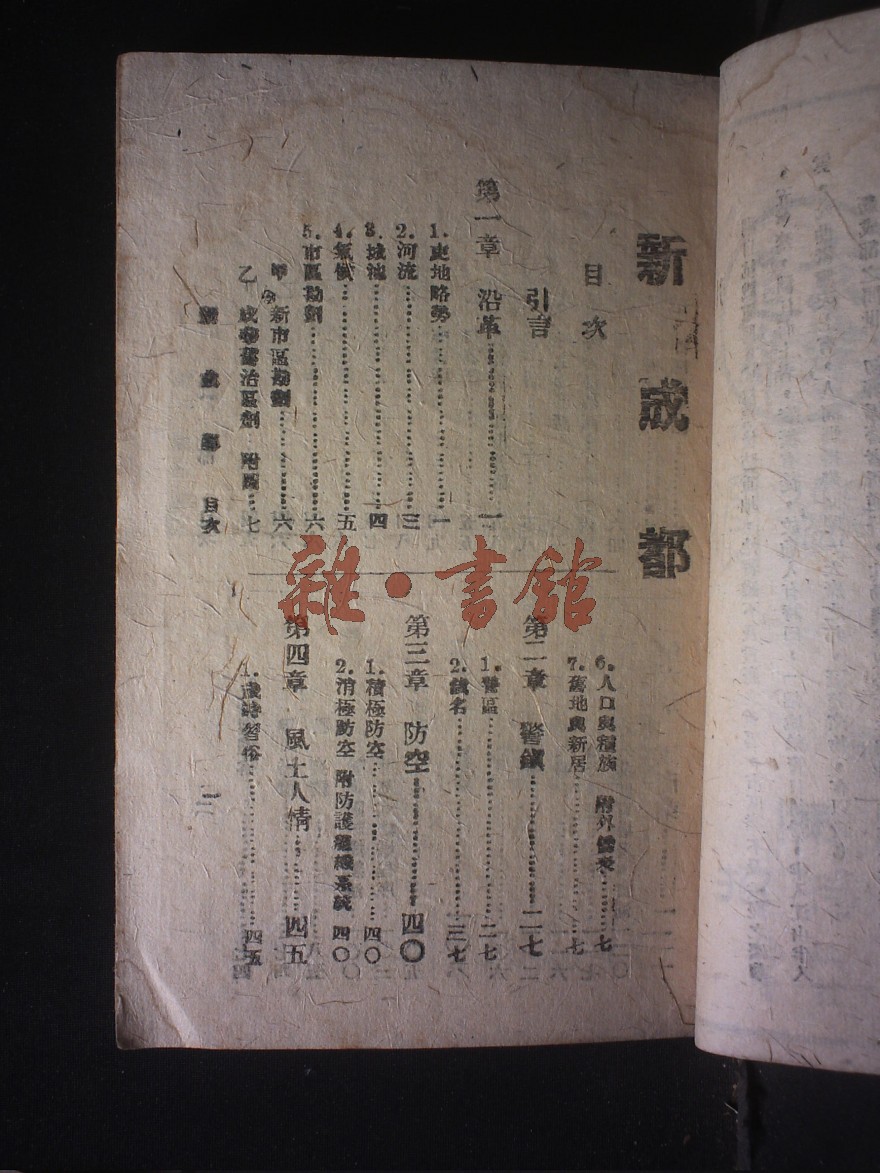 新成都
目次
引言
第一章 沿革……一
1.史地略勢……一
2.河流……三
3.城池……四
4.氣候……五
5.市區勘劃……六
甲 新市區勘劃……六
乙 成華舊治區劃 附圖……七
新成都 目次
6.人口與種族 附外僑表……七
7.舊地與新居……七
第二章 警鎮……二七
1.警區……二七
2.鎮名……三七
第三章 防空……四〇
1.積極防空……四〇
2.消極防空 附防護組織系統 四〇
第四章 風土人情……四五
1.歲時習俗……四五
一
雜·書館